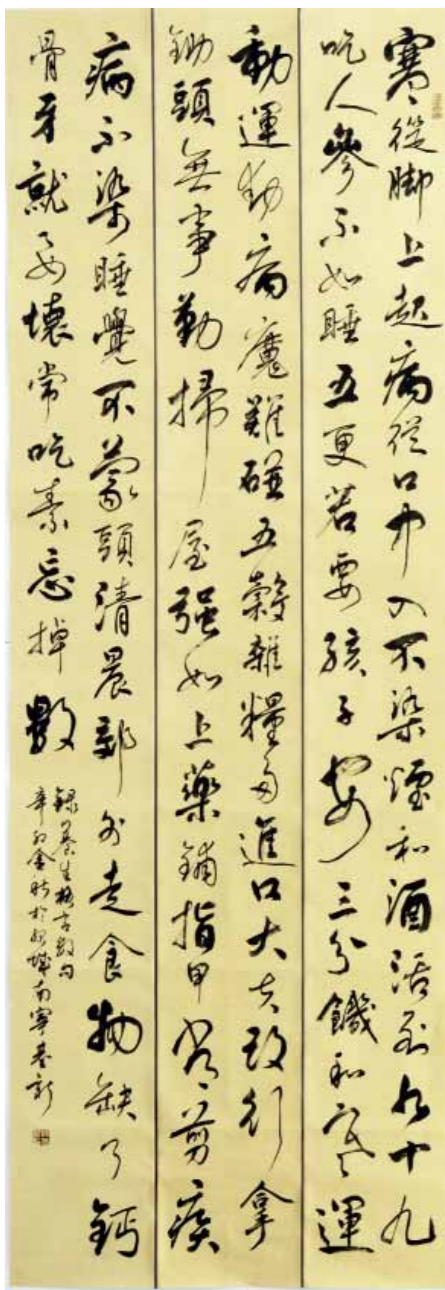 寒從脚上起病從口中入不染煙和酒活到九十九
吃人參不如睡五更若要孩子安三分饑和寒運
動運動病魔難碰五穀雜糧多進口大夫改行拿
鋤頭無事勤掃屋强如上藥鋪指甲常剪疾
病不染睡覺不蒙頭清晨郊外走食物缺了鈣
骨牙就要壞常吃素忘掉數
錄養生格言數句
辛卯金秋於城南寧